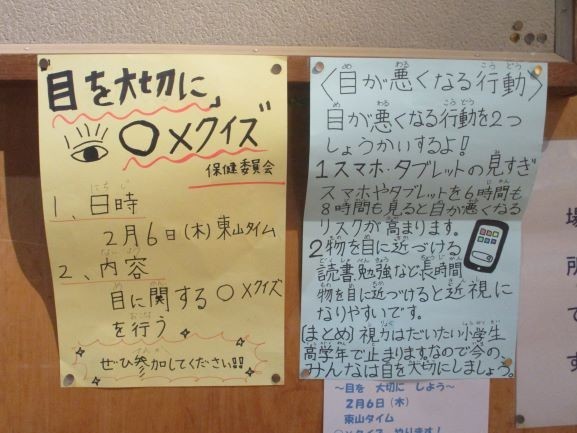 目を大切に
〇×クイズ
保健委員会
1、日時
2月6日(木)東山タイム
2、内容
目に関する〇×クイズ
を行う
ぜひ参加してください!!
〈目が悪くなる行動〉
目が悪くなる行動を2つ
しょうかいするよ!
1スマホ・タブレットの見すぎ
スマホやタブレットを6時間も
8時間も見ると目が悪くなる
リスクが高まります。
2物を目に近づける
読書勉強など長時間
物を目に近づけると近視に
なりやすいです。
(まとめ)視力はだいたい小学生
高学年で止まります。なので今の、
みんなは目を大切にしましょう。
~目を 大切に しよう~
2月6日(木)
東山タイム
〇×クイズ やります!
場
所
で
す